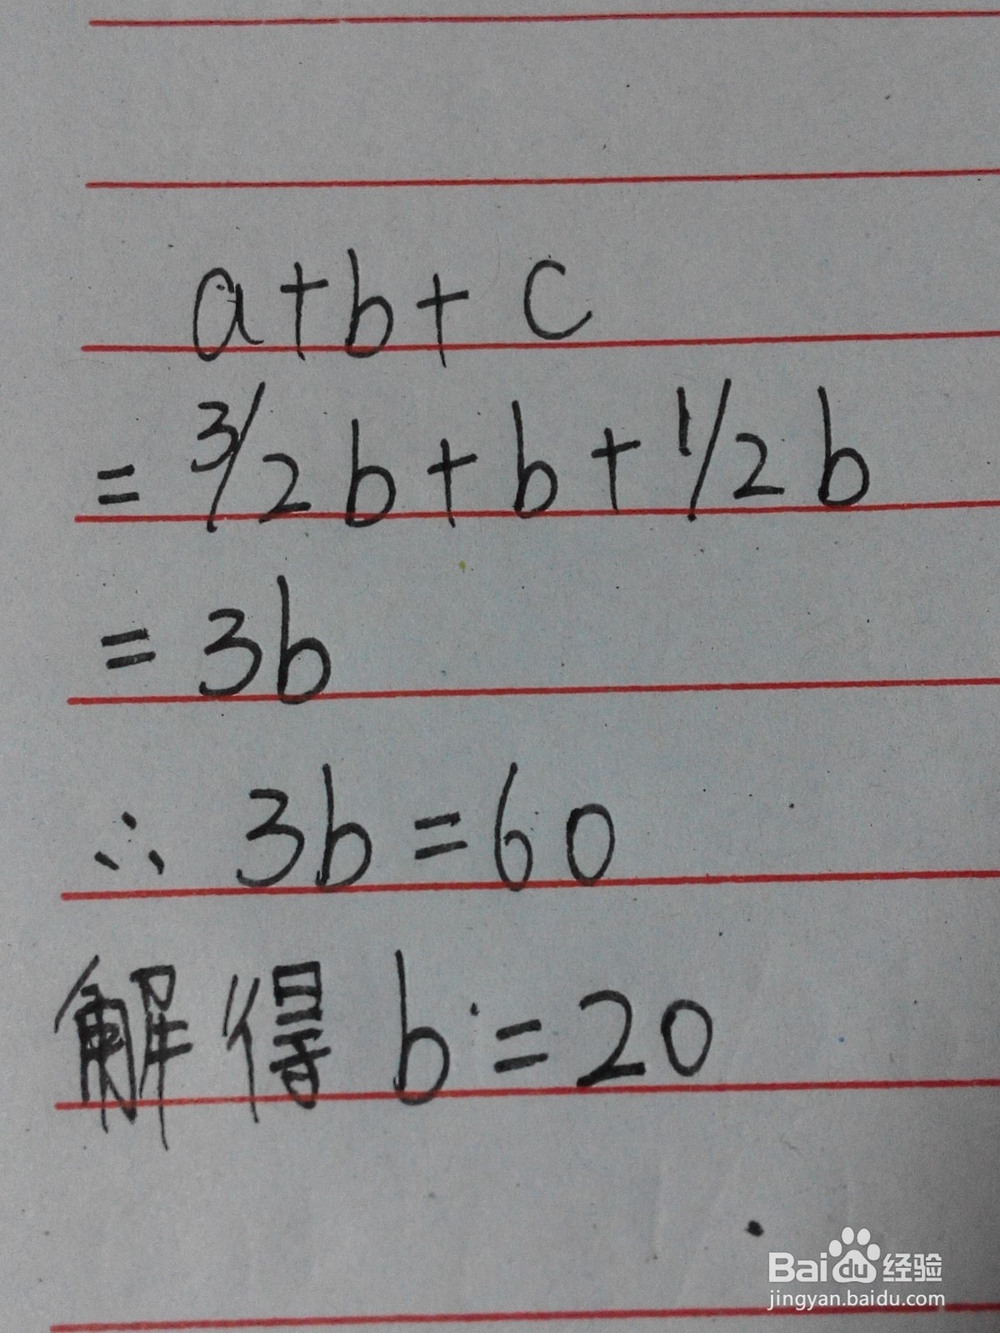 a+b+c
=3/2b+b+1/2b
=3b
∴ 3b=60
解得 b=20
Baidu经验
jingyan.baidu.com